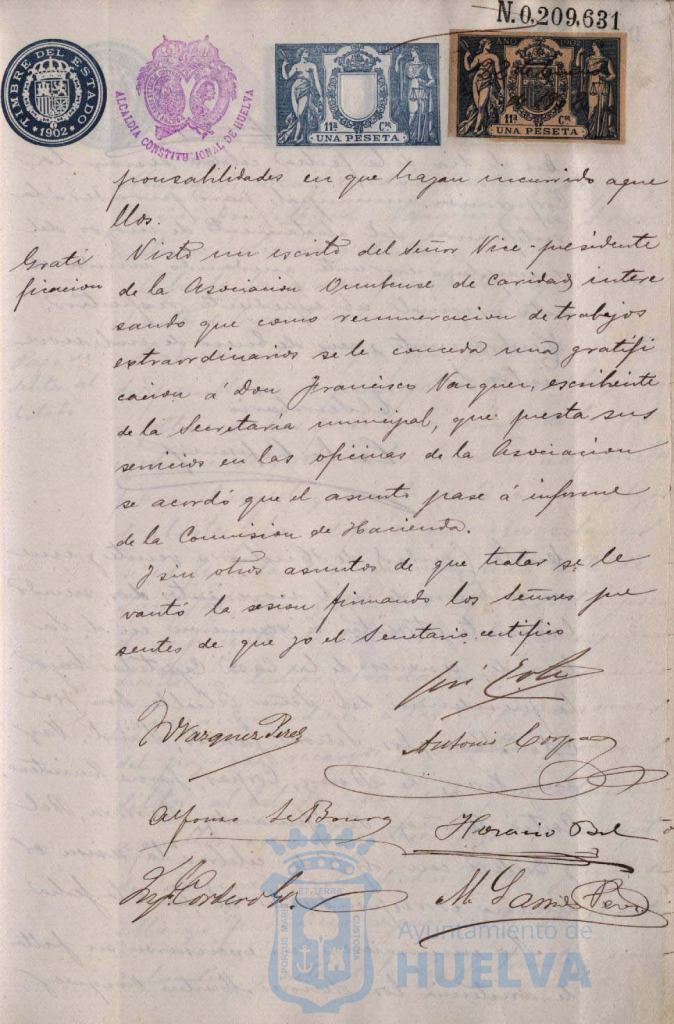 N.0,209,631
TIMBRE DEL ESTADO
1902
ALCALDIA CONSTITUCIONAL DE HUELVA
11ª Cª
UNA PESETA
AÑO 1902
11ª Cª
UNA PESETA
ponsabilidades en que hayan incurrido aque
llos.
Grati
ficacion
Visto un escrito del Señor Vice-presidente
de la Asociacion Onubense de Caridad, intere
sando que como remuneracion de trabajos
extraordinarios se le conceda una gratifi
cacion á Don Francisco Vazquez, escribiente
de la Secretaría municipal, que presta sus
servicios en las oficinas de la Asociacion
se acordó que el asunto pase á informe
de la Comision de Hacienda.
Y sin otros asuntos de que tratar se le
vantó la sesion firmando los Señores pre
sentes de que yo el Secretario certifico
José
Vazquez Perez
Antonio
Alfonso Le Bourg
Horacio Bel
Cordero
M. Perez
PORTUS MARIS ET TERRÆ CUSTODIA
Ayuntamiento de
HUELVA